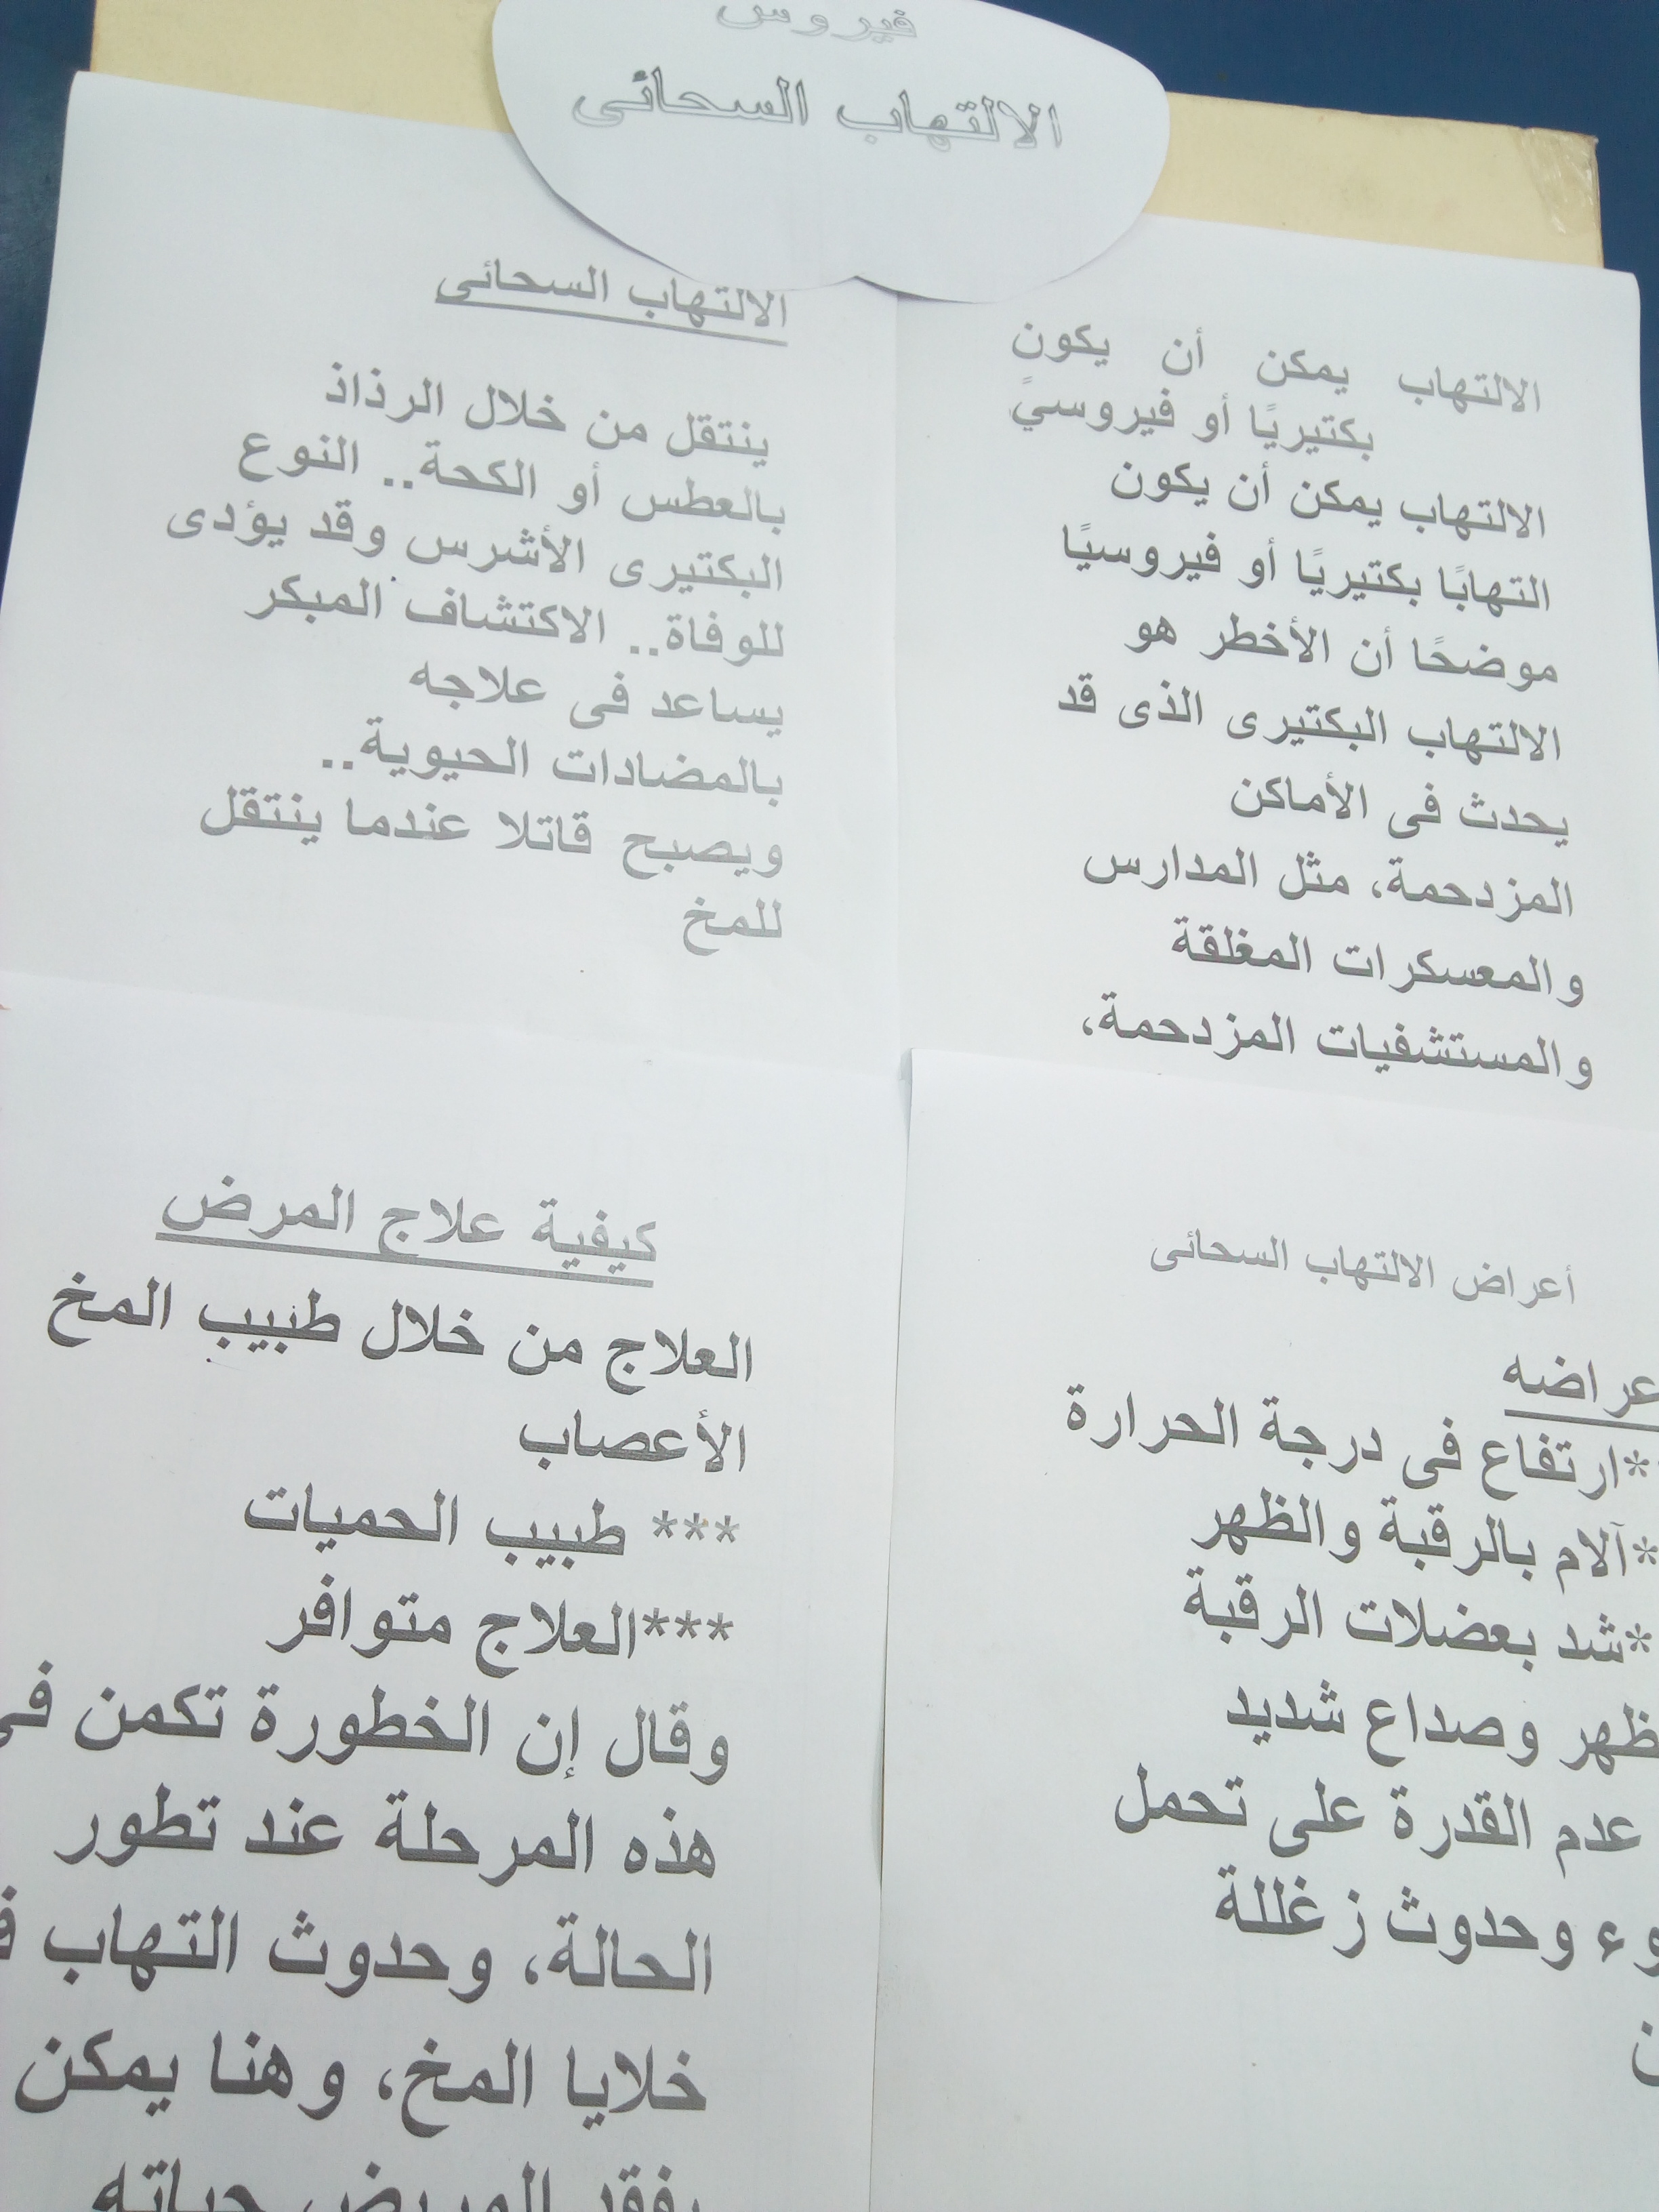 فيروس
الالتهاب السحائى
الالتهاب يمكن أن يكون
بكتيريًا أو فيروسيً
الالتهاب يمكن أن يكون
التهابًا بكتيريًا أو فيروسيًا
موضحًا أن الأخطر هو
الالتهاب البكتيرى الذى قد
يحدث فى الأماكن
المزدحمة، مثل المدارس
والمعسكرات المغلقة
والمستشفيات المزدحمة،
الالتهاب السحائى
ينتقل من خلال الرذاذ
بالعطس أو الكحة.. النوع
البكتيرى الأشرس وقد يؤدى
للوفاة.. الاكتشاف المبكر
يساعد فى علاجه
بالمضادات الحيوية..
ويصبح قاتلا عندما ينتقل
للمخ
أعراض الالتهاب السحائى
عراضه
*ارتفاع فى درجة الحرارة
*آلام بالرقبة والظهر
*شد بعضلات الرقبة
ظهر وصداع شديد
عدم القدرة على تحمل
وء وحدوث زغللة
كيفية علاج المرض
العلاج من خلال طبيب المخ
الأعصاب
*** طبيب الحميات
***العلاج متوافر
وقال إن الخطورة تكمن فى
هذه المرحلة عند تطور
الحالة، وحدوث التهاب
خلايا المخ، وهنا يمكن
يفقد المريض حياته